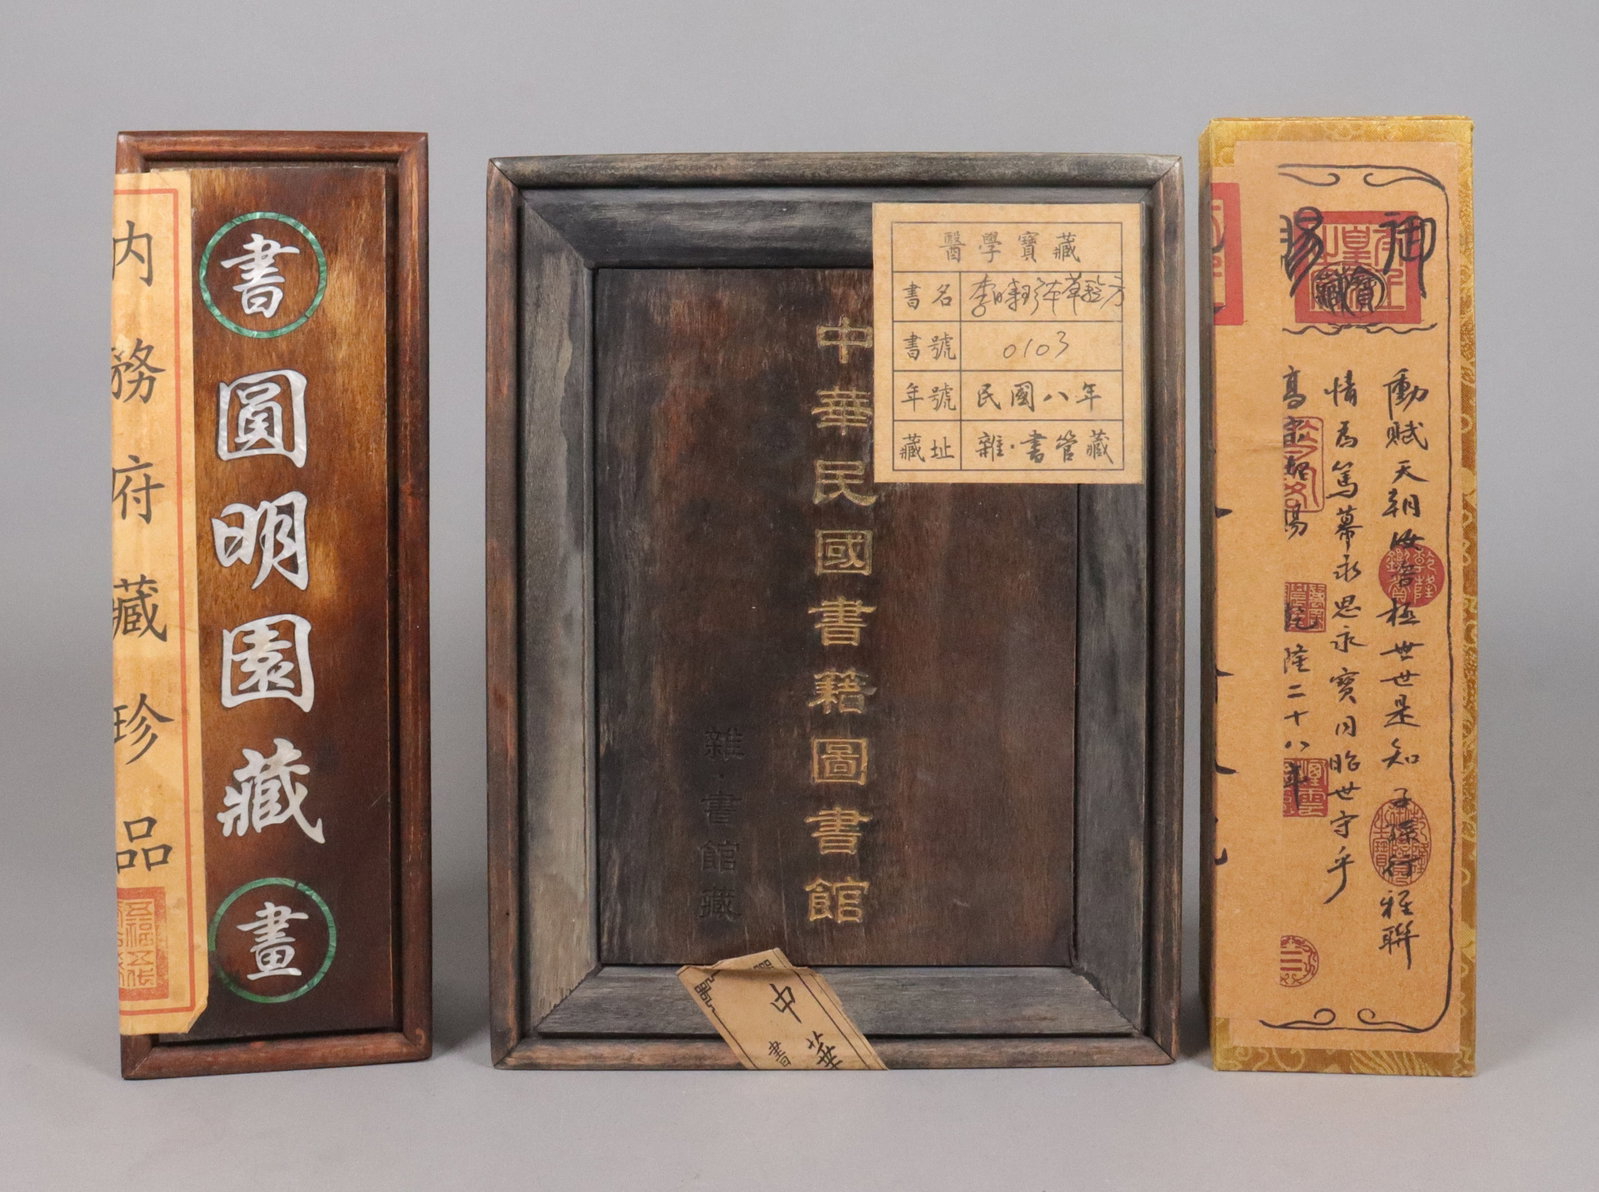 内務府藏珍品
書
圓明園藏
畫
醫學寶藏
書名
李時珍本草驗方
書號
0103
年號
民國八年
藏址
雜·書管藏
中華民國書籍圖書館
雜·書館藏
中華
書
御
賜
寶藏
勳賦天朝汝皆極世世是知子孫行雅聯
情為篤慕永思永寶同昭世守乎
隆二十八年
乾隆